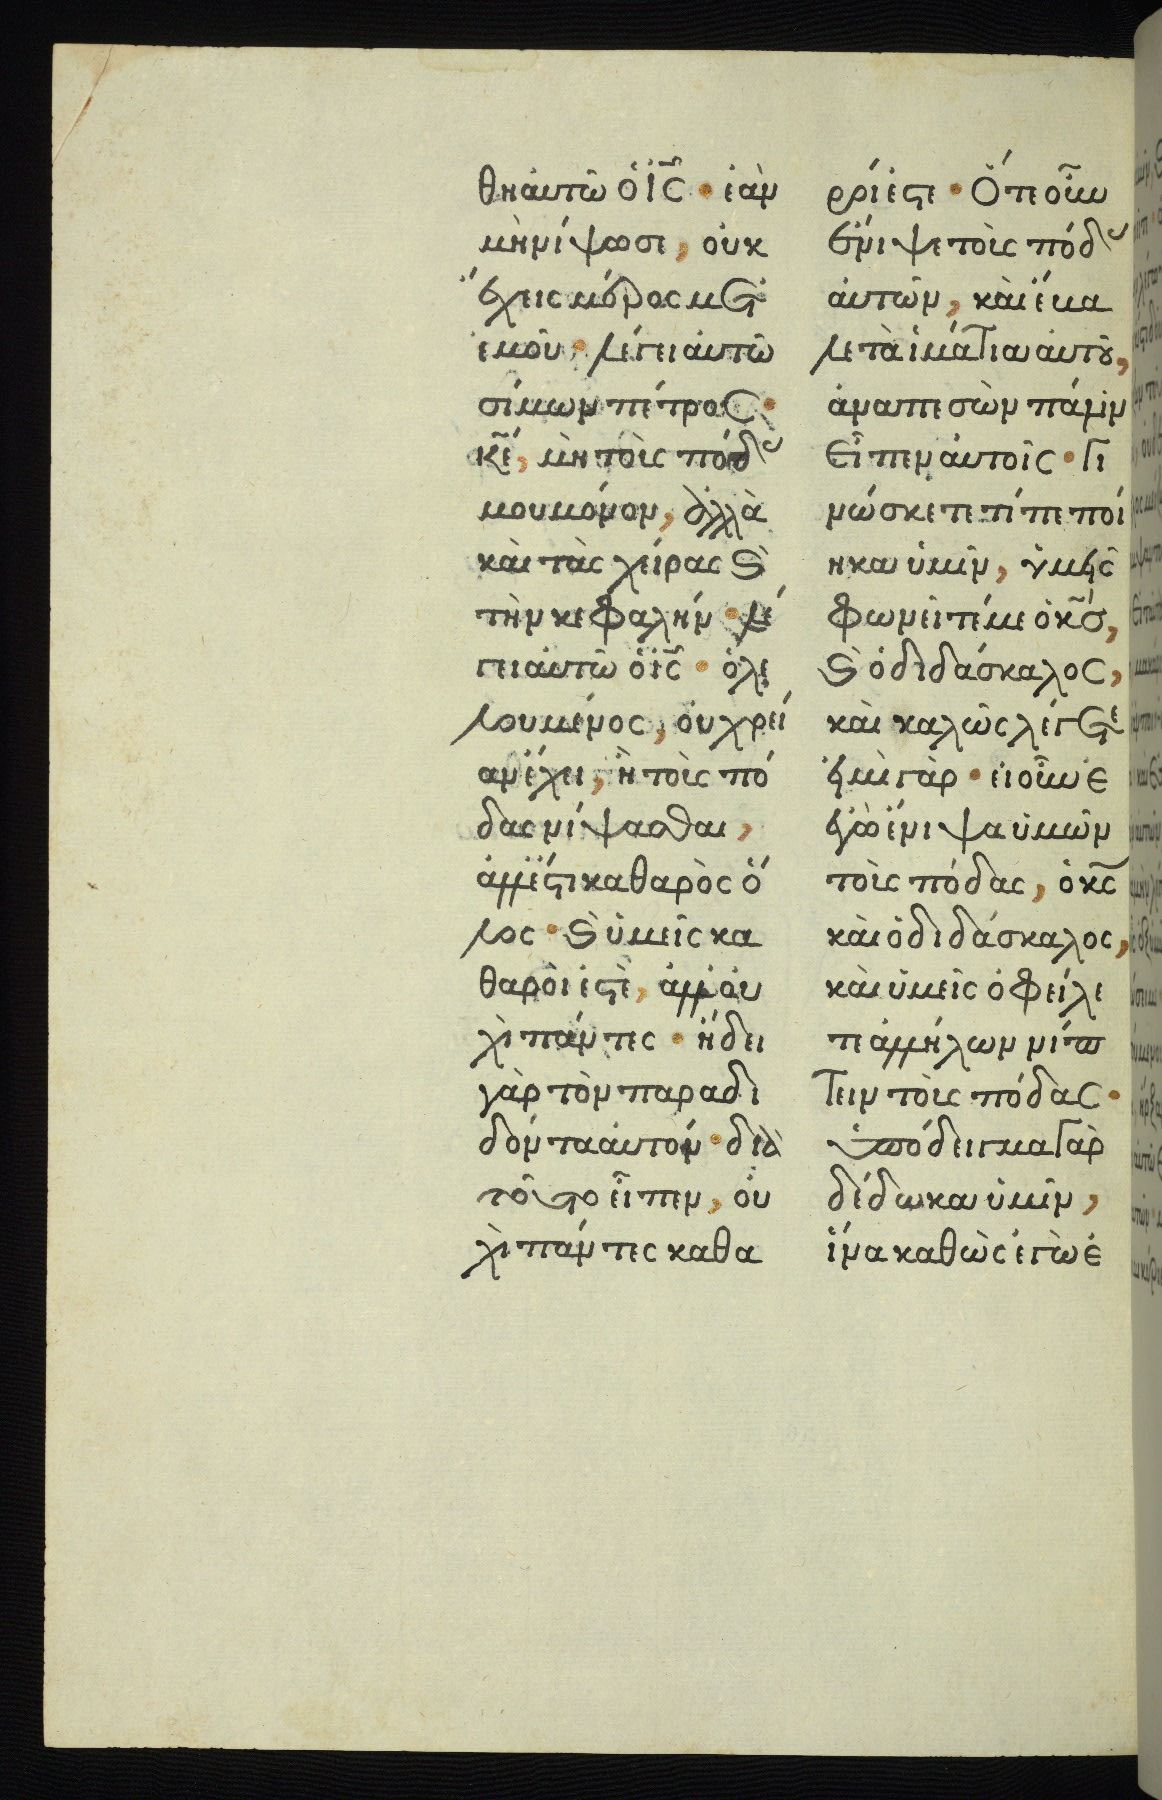 θη αὐτῶ ὁ ἰς̄ · ἐὰν
μὴ νίψω σε, οὐκ
ἔχεις μέρος μετ'
ἐμοῦ · λέγει αὐτῶ
σίμων πέτρος ·
κε̄, μὴ τοὺς πόδας
μου μόνον, ἀλλὰ
καὶ τὰς χεῖρας ϗ
τὴν κεφαλήν · λέ
γει αὐτῶ ὁ ἰς̄ · ὁ λε
λουμένος, οὐ χρεί
αν ἔχει, ἢ τοὺς πό
δας νίψασθαι,
ἀλλ' ἔστι καθαρὸς ὅ
λος · ϗ ὑμεῖς κα
θαροὶ ἐστὲ, ἀλλ' οὐ
χὶ πάντες · ἤδει
γὰρ τὸν παραδι
δόντα αὐτόν · διὰ
τοῦτο εἶπεν, οὐ
χὶ πάντες καθα
ροί ἐστε · Ὅτε οὖν
ἔνιψε τοὺς πόδας
αὐτῶν, καὶ ἔλα
βε τὰ ἱμάτια αὐτοῦ,
ἀναπεσὼν πάλιν
εἶπεν αὐτοῖς · γι
νώσκετε τί πεποί
ηκα ὑμῖν, ὑμεῖς
φωνεῖτέ με ὁ κς̄,
ϗ ὁ διδάσκαλος,
καὶ καλῶς λέγετε
εἰμὶ γὰρ · εἰ οὖν ἐ
γὼ ἔνιψα ὑμῶν
τοὺς πόδας, ὁ κς̄
καὶ ὁ διδάσκαλος,
καὶ ὑμεῖς ὀφείλε
τε ἀλλήλων νίπ
τειν τοὺς πόδας ·
ὑπόδειγμα γὰρ
δέδωκα ὑμῖν,
ἵνα καθὼς ἐγὼ ἐ